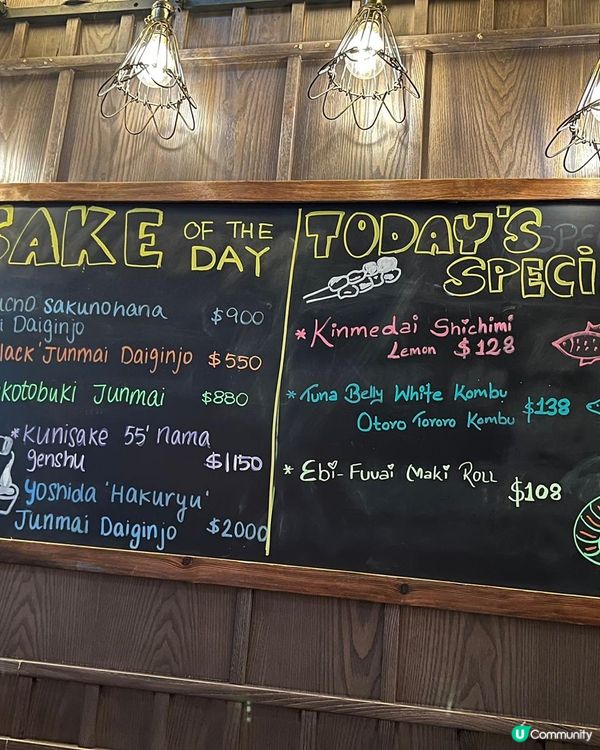 SAKE OF THE DAY
ucho Sakunohana
i Daiginjo $900
lack' Junmai Daiginjo $550
kotobuki Junmai $880
*Kunisake 55' Nama
genshu $1150
Yoshida 'Hakuryu'
Junmai Daiginjo $2000
TODAY'S
SPECI
*Kinmedai Shichimi
Lemon $128
*Tuna Belly White Kombu
Otoro Tororo Kombu $138
*Ebi-Fuuai Maki Roll
$108
U Community